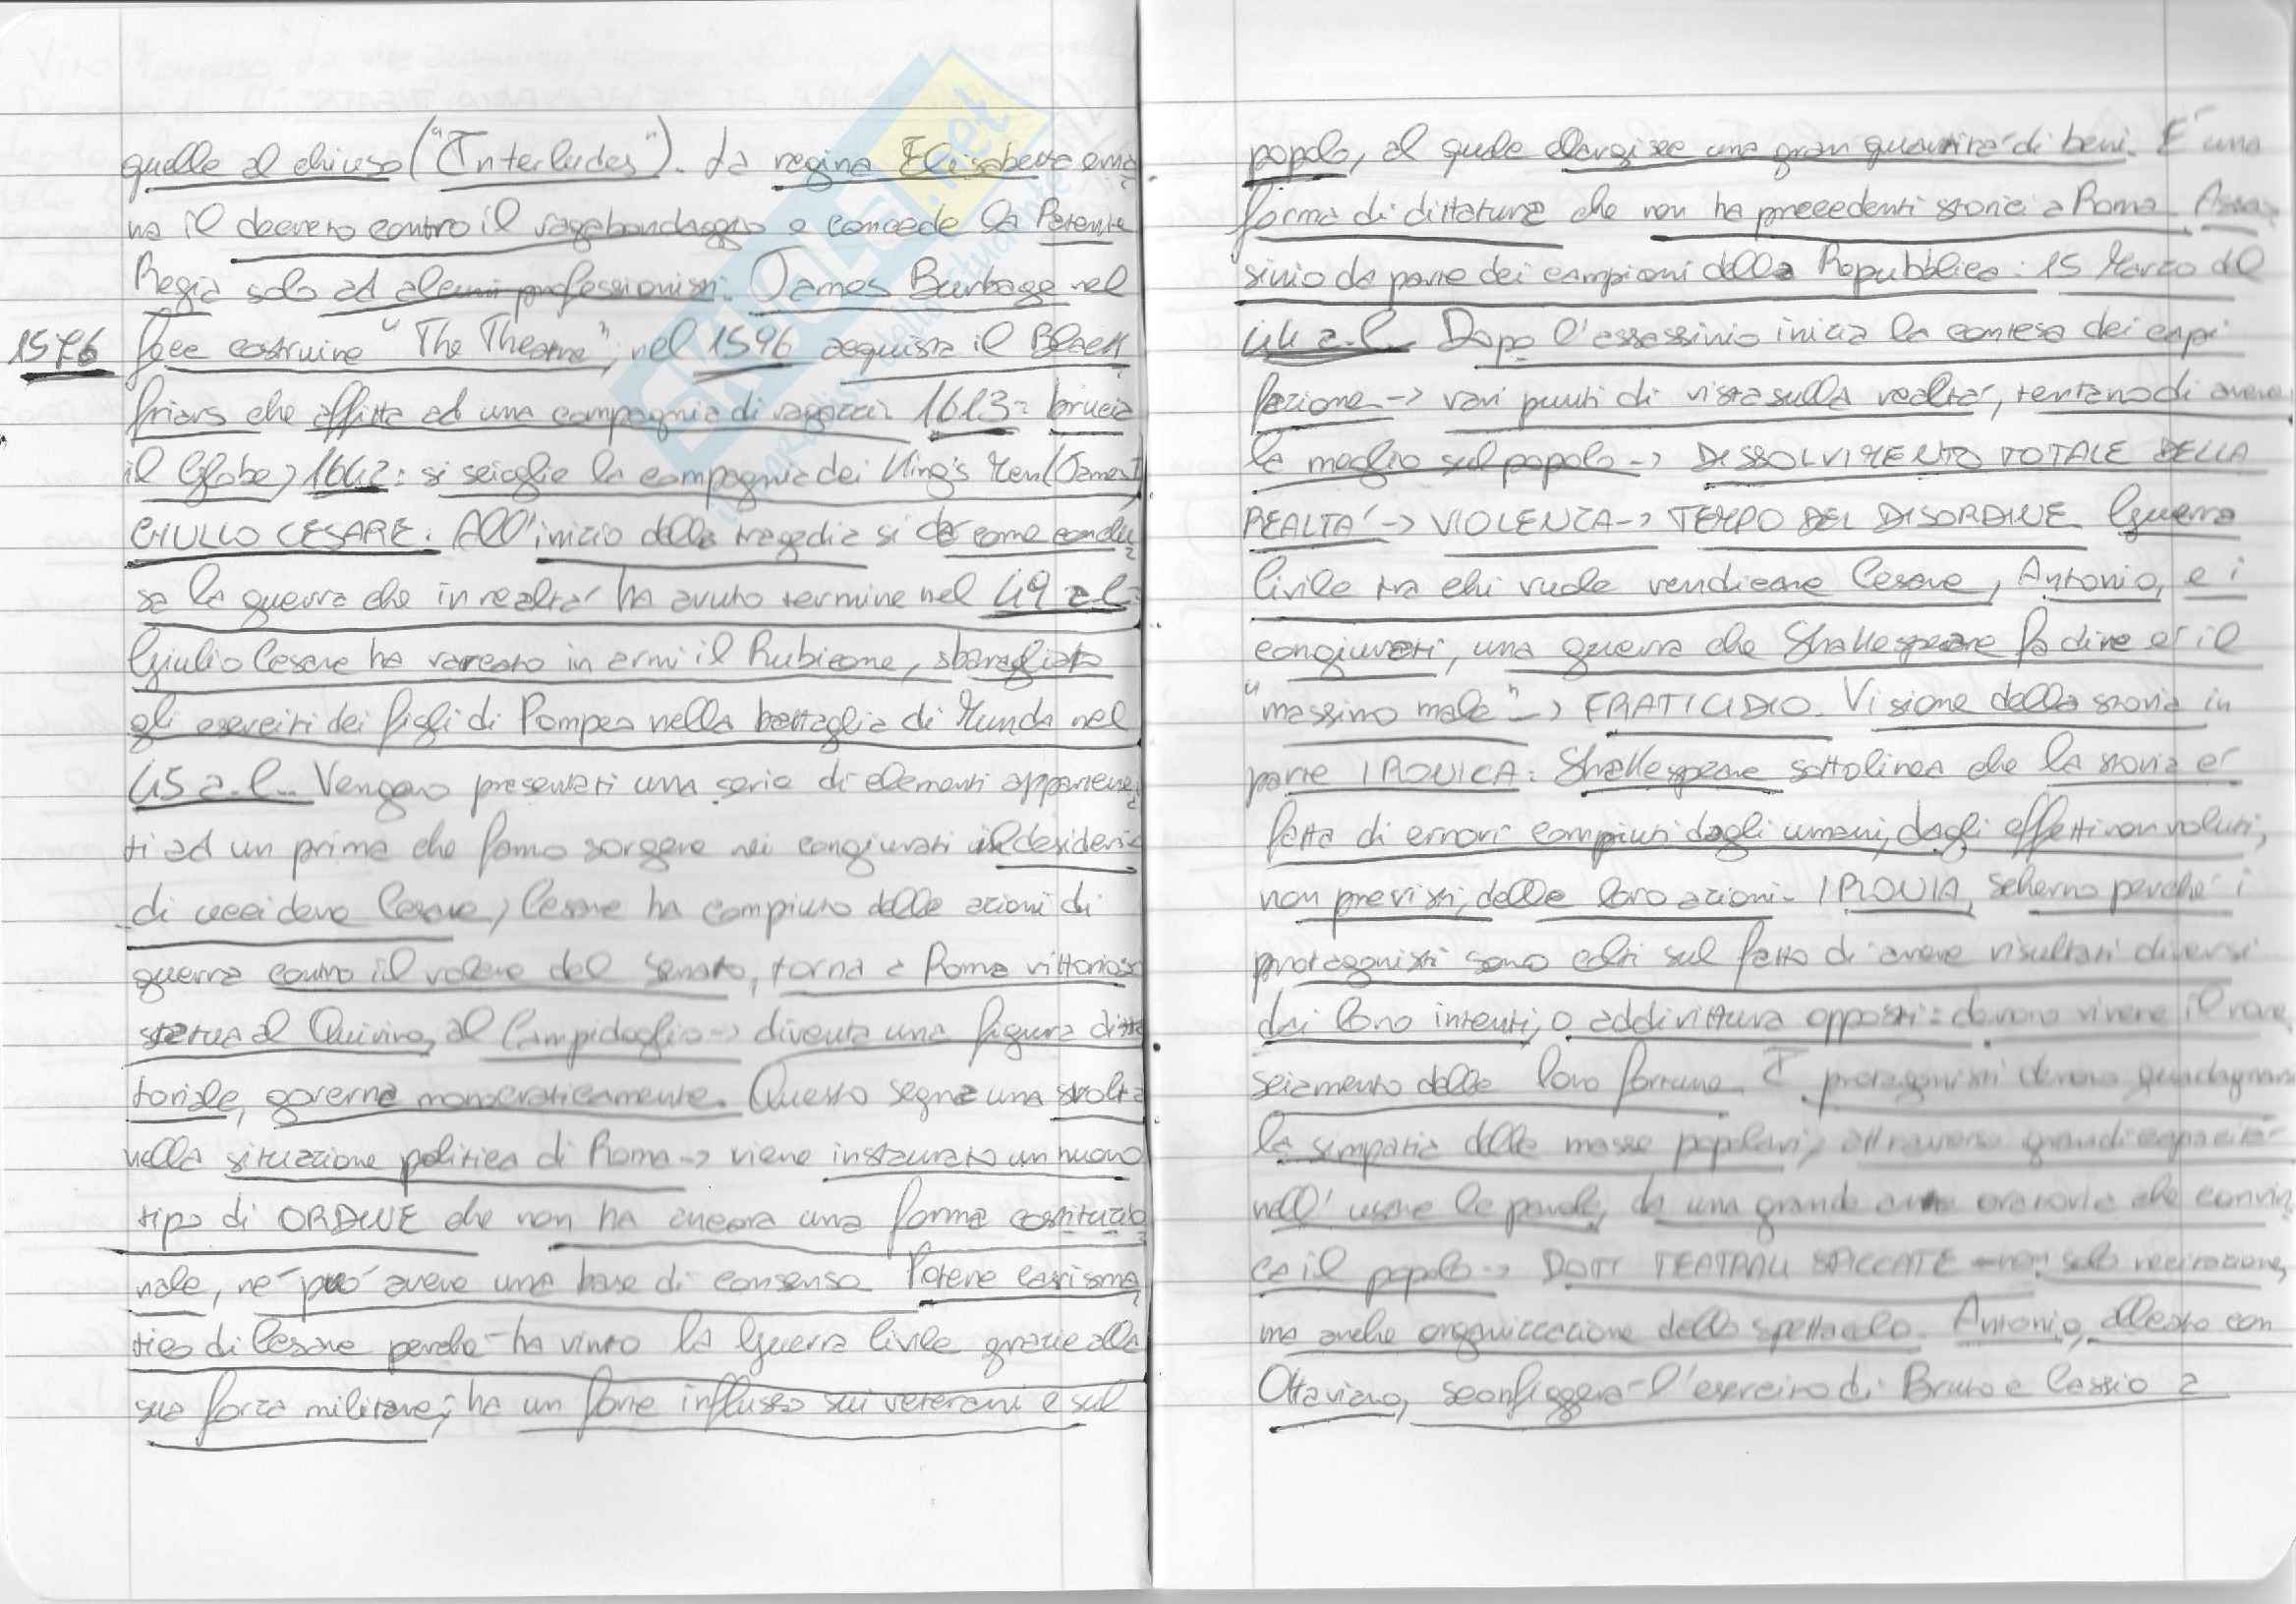 quelle al chiuso ("Interludes"). La regina Elisabetta ema
na il decreto contro il vagabondaggio e concede la Patente
Regia solo ad alcuni professionisti. James Burbage nel
1576 fece costruire "The Theatre", nel 1596 acquista il Black
friars che affitta ad una compagnia di ragazzi. 1613: brucia
il Globe, 1642: si scioglie la compagnia dei King's Men (James I)
GIULIO CESARE. All'inizio della tragedia si dà come conclu
sa la guerra che in realtà ha avuto termine nel 49 a.C.
Giulio Cesare ha varcato in armi il Rubicone, sbaragliato
gli eserciti dei figli di Pompeo nella battaglia di Munda nel
45 a.C.. Vengono presentati una serie di elementi appartenen
ti ad un prima che fanno sorgere nei congiurati il desiderio
di uccidere Cesare, Cesare ha compiuto delle azioni di
guerra contro il volere del Senato, torna a Roma vittorioso
statua al Quirino, al Campidoglio -> diventa una figura ditta
toriale, governa monocraticamente. Questo segna una svolta
nella situazione politica di Roma -> viene instaurato un nuovo
tipo di ORDINE che non ha ancora una forma costituzio
nale, né può avere una base di consenso. Potere carisma
tico di Cesare perché ha vinto la Guerra Civile grazie alla
sua forza militare; ha un forte influsso sui veterani e sul
popolo, al quale elargisce una gran quantità di beni. È una
forma di dittatura che non ha precedenti storici a Roma. Assas
sinio da parte dei campioni della Repubblica: 15 Marzo del
44 a.C. Dopo l'assassinio inizia la contesa dei capi
fazione -> vari punti di vista sulla realtà, tentano di avere
la meglio sul popolo -> DISSOLVIMENTO TOTALE DELLA
REALTÀ -> VIOLENZA -> TEMPO DEL DISORDINE. Guerra
Civile tra chi vuole vendicare Cesare, Antonio, e i
congiurati, una guerra che Shakespeare fa dire è il
"massimo male" -> FRATICIDIO. Visione della storia in
parte IRONICA: Shakespeare sottolinea che la storia è
fatta di errori compiuti dagli umani, dagli effetti non voluti,
non previsti, delle loro azioni. IRONIA, scherno perché i
protagonisti sono colti sul fatto di avere risultati diversi
dai loro intenti, o addirittura opposti: devono vivere il rove
sciamento delle loro fortune. I protagonisti devono guadagnare
la simpatia delle masse popolari, attraverso grandi capacità
nell'usare le parole, da una grande arte oratoria che convin
ca il popolo -> DOTI TEATRALI SPICCATE non solo recitazione,
ma anche organizzazione dello spettacolo. Antonio, alleato con
Ottaviano, sconfiggerà l'esercito di Bruto e Cassio a